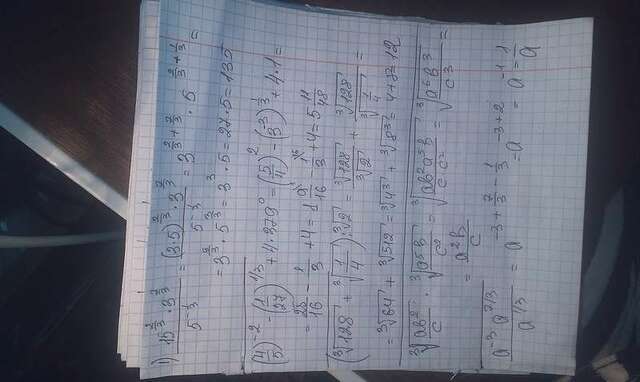 1) 15^{2/3} · 3^{7/3} / 5^{-1/3} = (3·5)^{2/3} · 3^{7/3} / 5^{-1/3} = 3^{2/3 + 7/3} · 5^{2/3 + 1/3} =
= 3^{9/3} · 5^{3/3} = 3^3 · 5 = 27 · 5 = 135
(4/5)^{-2} - (1/27)^{1/3} + 4 · 379^0 = (5/4)^2 - (3^{-3})^{1/3} + 4 · 1 =
= 25/16 - 1/3 + 4 = 1 9/16 - 1/3 + 4 = 5 11/48
(∛128 + ∛(1/4)) : ∛2 = ∛128/∛2 + ∛128/∛(1/4) =
= ∛64 + ∛512 = ∛4^3 + ∛8^3 = 4 + 8 = 12
∛(ab^2/c) · ∛(a^5b/c^2) = ∛(ab^2a^5b/cc^2) = ∛(a^6b^3/c^3) =
= a^2b/c
a^{-3} a^{7/3} / a^{1/3} = a^{-3 + 7/3 - 1/3} = a^{-3+2} = a^{-1} = 1/a